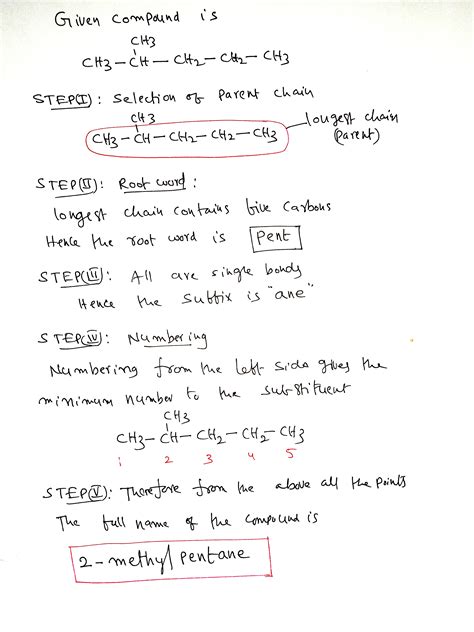 Given compound is
CH3
CH3-CH-CH2-CH2-CH3
STEP(I): Selection of Parent chain
CH3
CH3-CH-CH2-CH2-CH3
longest chain
(parent)
STEP(II): Root word:
longest chain contains five carbons
Hence the root word is Pent
STEP(III): All are single bonds
Hence the suffix is "ane"
STEP(IV): Numbering
Numbering from the left side gives the
minimum number to the substituent
CH3
CH3-CH-CH2-CH2-CH3
1 2 3 4 5
STEP(V): Therefore from the above all the points
The full name of the compound is
2-methyl pentane